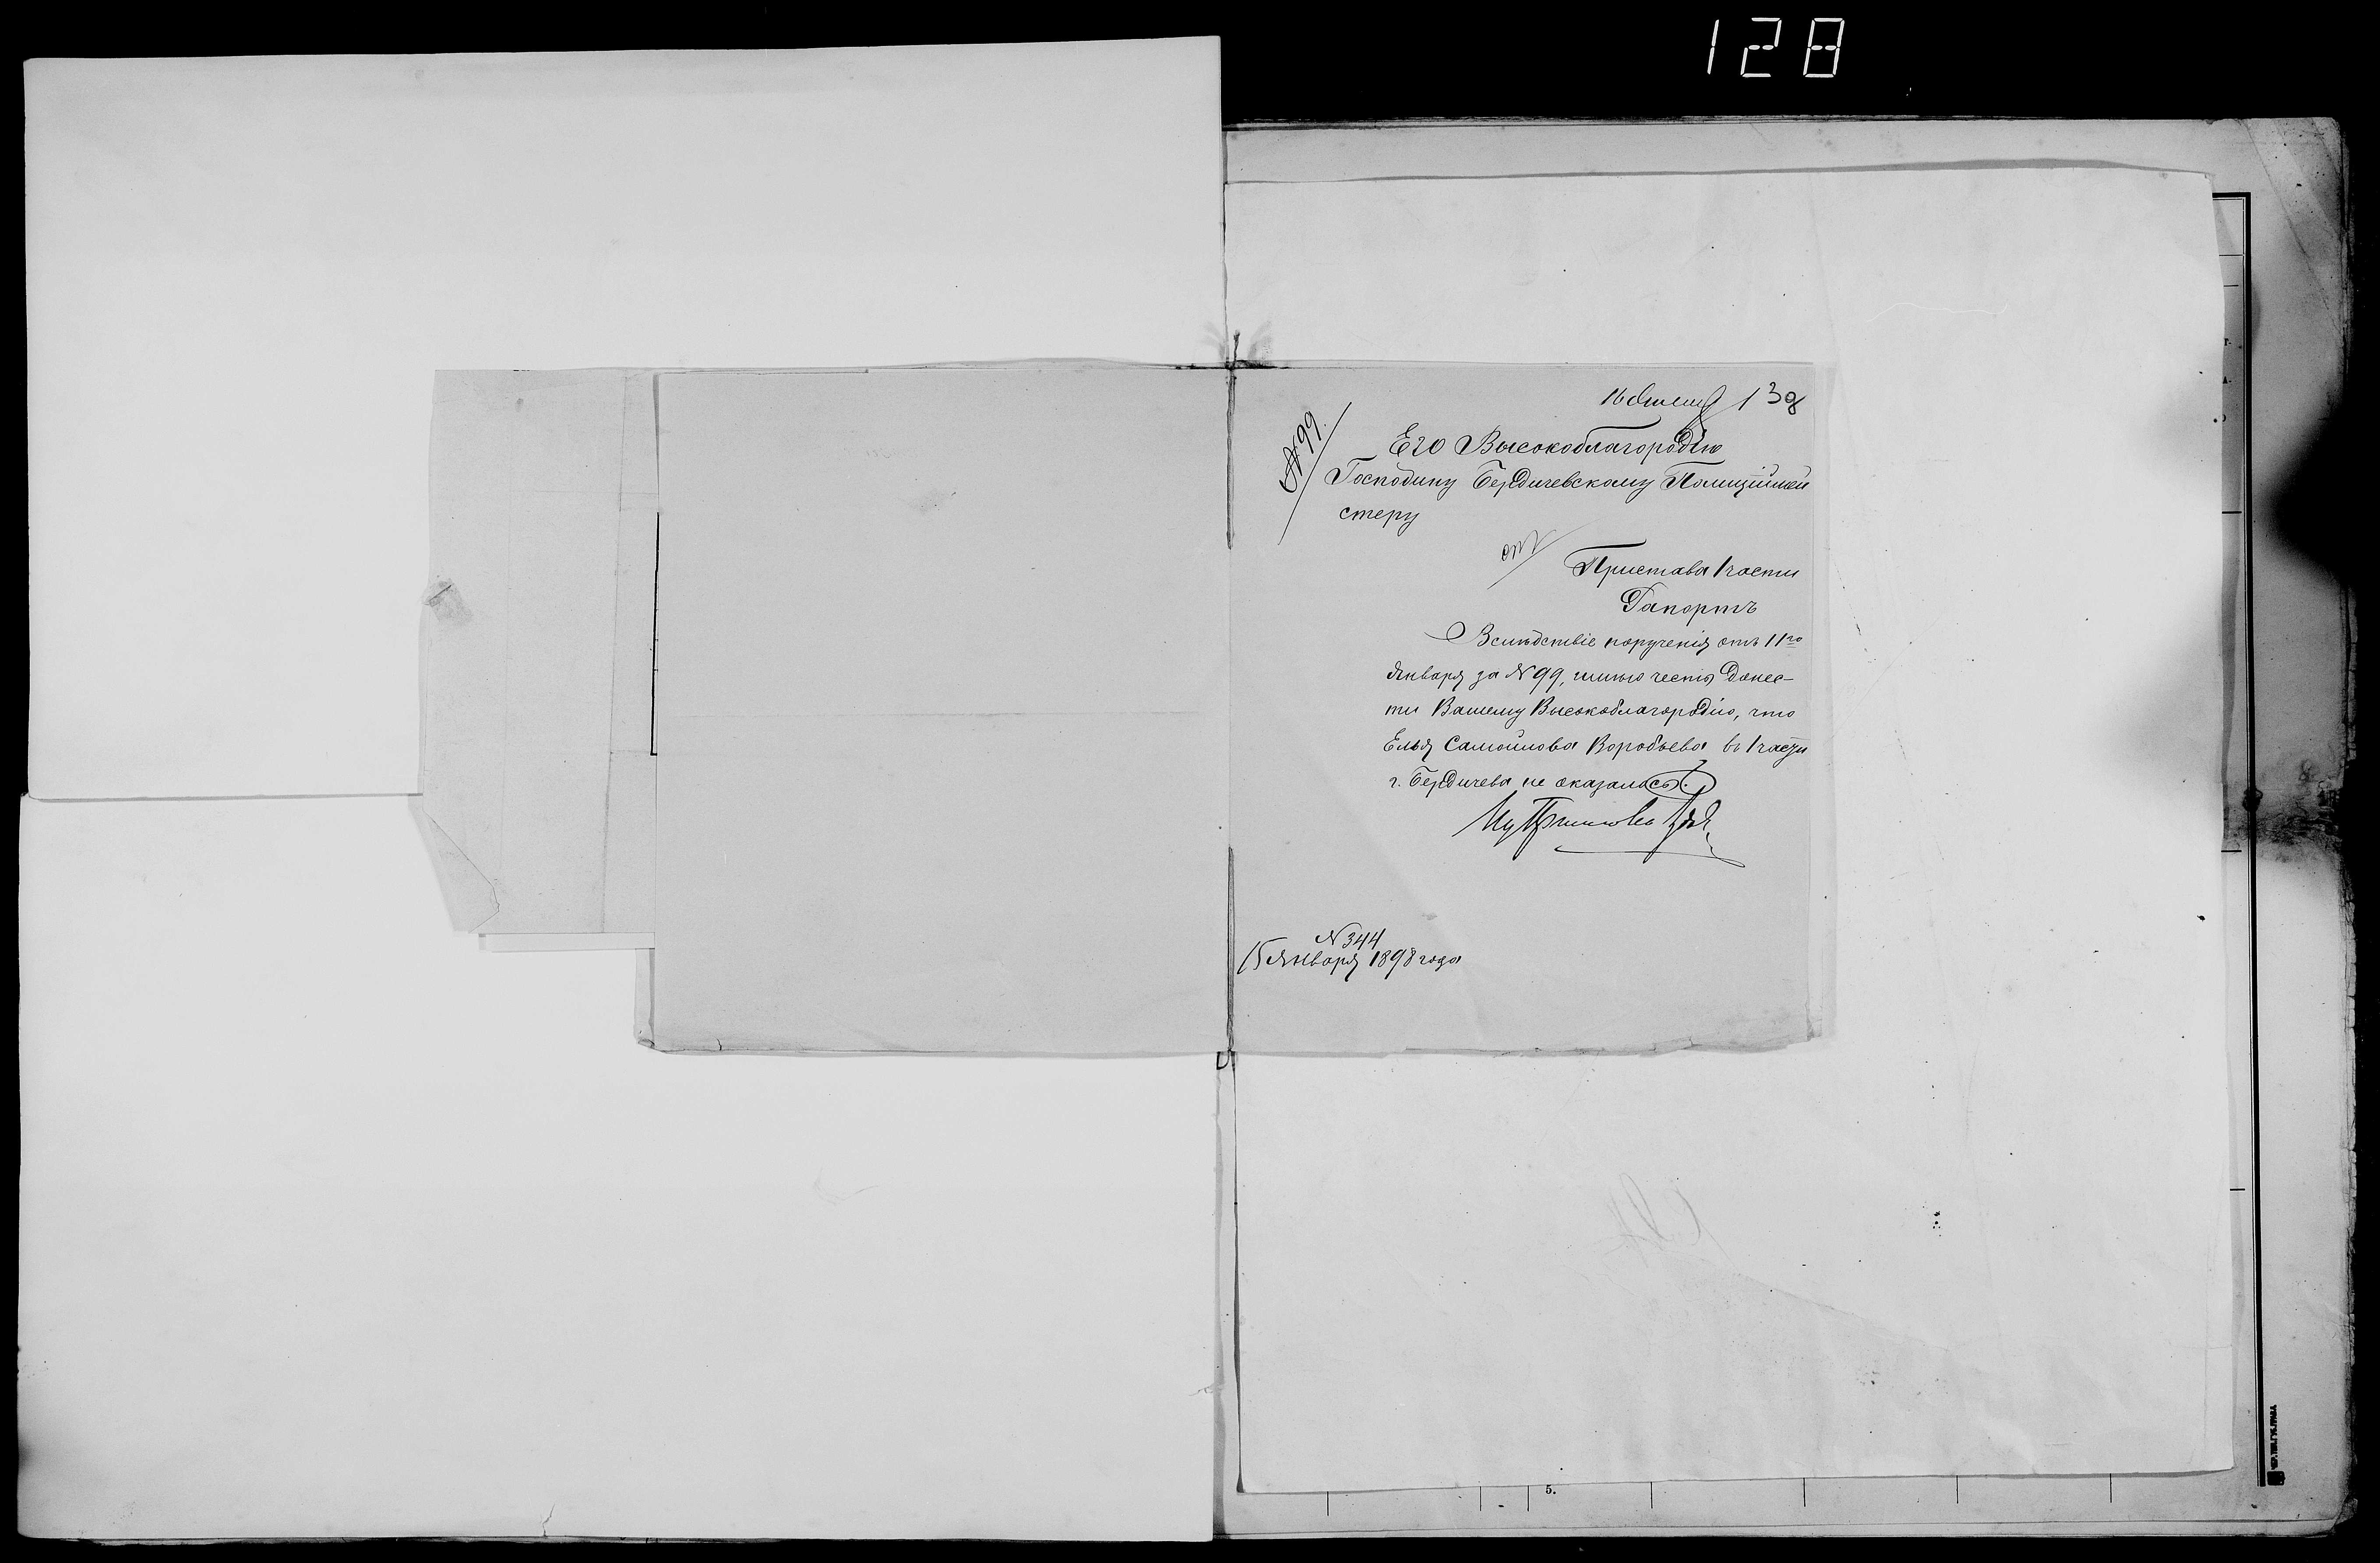 128
16 Января 138
№ 99.
Его Высокоблагородію
Господину Бердичевскому Полиціймей
стеру
Пристава 1 части
Рапортъ
Вслѣдствіе порученія отъ 11го
Января за № 99, имѣю честь донес-
ти Вашему Высокоблагородію, что
Елья Самойлова Воробьева въ 1 части
г. Бердичева не оказалось.
№ 344
15 Января 1898 года
5.